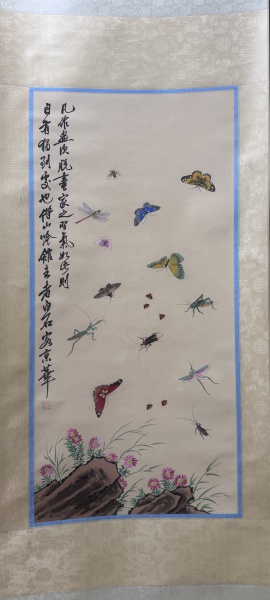 凡作画须脱画家之习气如此则
自有独到处也借山吟馆主者白石客京华